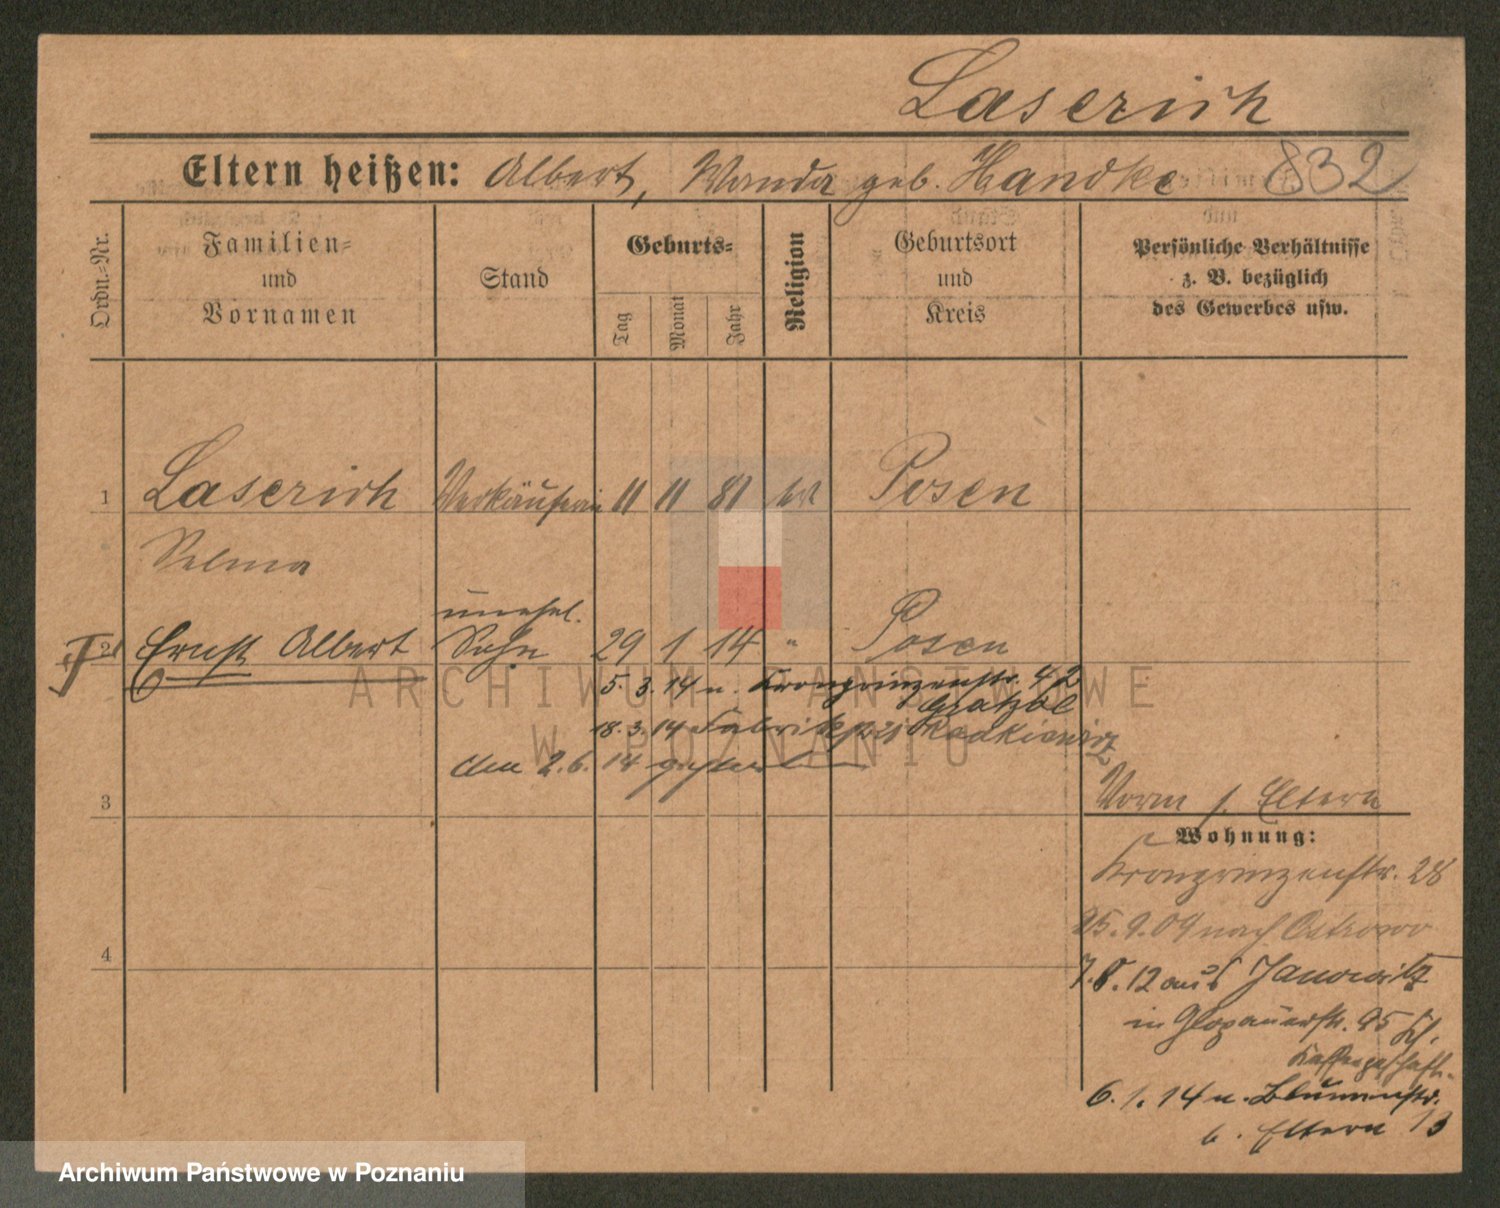 Laserich
Eltern heißen: Albert, Wanda geb. Handke 832
Ordn.-Nr.
Familien- und Vornamen
Stand
Geburts-
Tag Monat Jahr
Religion
Geburtsort und Kreis
Persönliche Verhältnisse
z. B. bezüglich
des Gewerbes usw.
1 Laserich Verkäuferin 11 11 81 Posen
Selma
unehel.
2 Ernst Albert Sohn 29 1 14 " Posen
5. 3. 14 n. Kronprinzenstr. 42
18. 3. 14 Fabrikstr.
den 2. 6. 14 gestorben
3
Vorm s. Eltern
Wohnung:
Kronprinzenstr. 28
25. 9. 09 nach Ostrowo
4
7. 8. 12 aus Janowitz
in Glogauerstr. 95
6. 1. 14 n. Blumenstr.
b. Eltern 13
ARCHIWUM PAŃSTWOWE
W POZNANIU
Archiwum Państwowe w Poznaniu